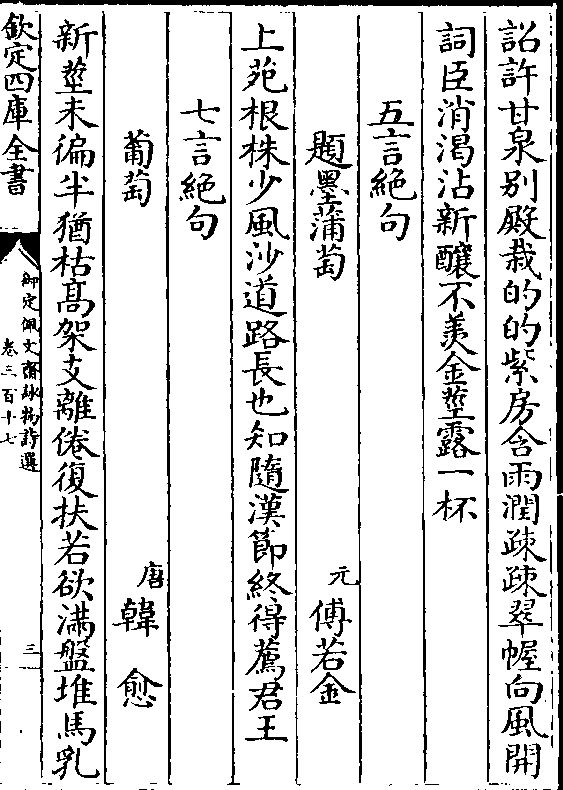 詔許甘泉别殿栽的的紫房含雨潤疎疎翠幄向風開
詞臣消渴沾新釀不羨金莖露一杯
五言絶句
題墨蒲萄 元 傅若金
上苑根株少風沙道路長也知隨漢節終得薦君王
七言絶句
葡萄 唐 韓愈
新莖未徧半猶枯髙架支離倦復扶若欲滿盤堆馬乳
欽定四庫全書
御定佩文齋詠物詩選
卷三百十七
三